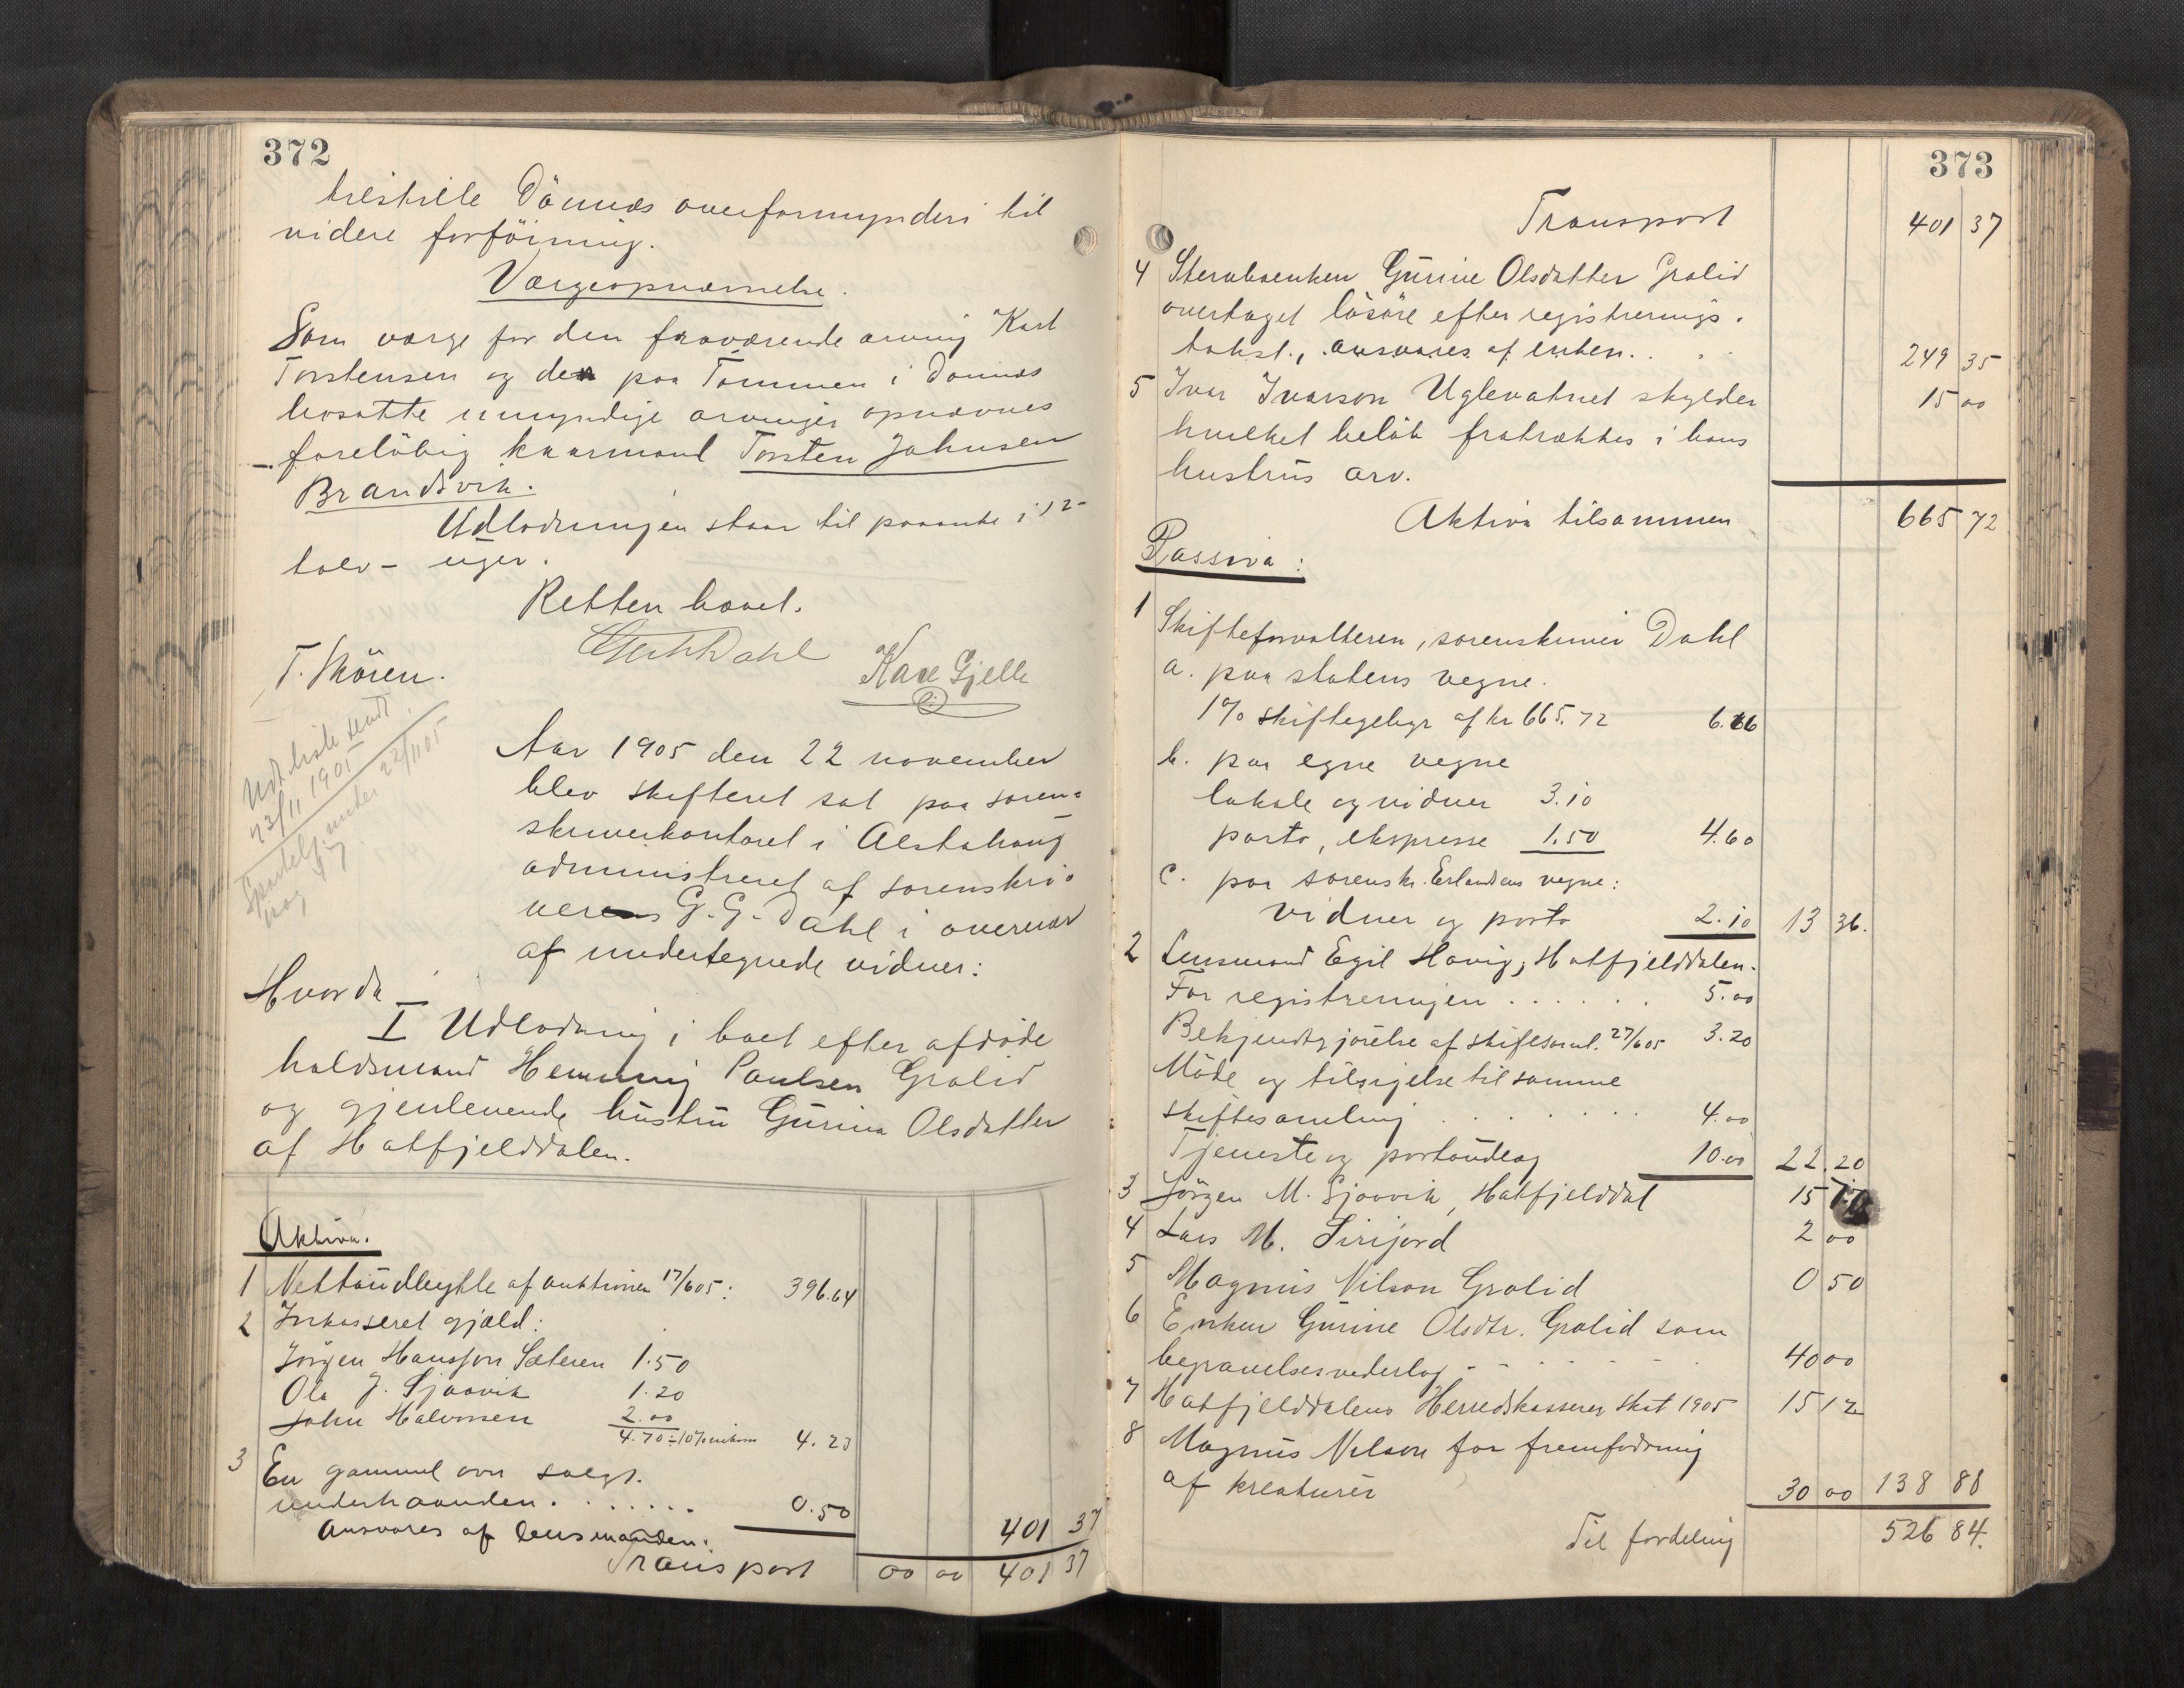 372
tilstille Dönnes overformynderi til
videre forföining.
Værgeopnævnelse.
Som værge for den fraværende arving Karl
Torstensen og den paa Tommen i Dönnes
bosatte umyndige arvinger opnævnes
foreløbig kaarmand Torsten Johnsen
Brandsvik.
Udlodningen staar til paaanke i 12
tolv - uger.
Retten hævet.
G Dahl
T. Mören. Kare Gjelle
Udskrift sendt
23/11 1905
Sportelj. under 22/1105
pag 47
Aar 1905 den 22 november
blev skifteret sat paa soren-
skriverkontoret i Alstahaug
administreret af sorenskri-
veren G. G. Dahl i overvær
af undertegnede vidner:
Hvorda
I Udlodning i boet efter afdöde
huldsmand Henning Paulsen Grolid
og gjenlevende hustru Gurine Olsdatter
af Hatfjelddalen.
Aktiva.
1 Nettoudbytte af auktionen 17/605: 396.64
2 Inkasseret gjæld:
Jörgen Hansson Sæteren 1.50
Ole J. Sjaavik 1.20
John Halvorsen 2.00
4.70 ÷ 10% inkass 4.23
3 En gammel ovn solgt
underhaanden. . . . . . . 0.50
Ansvares af lensmanden. 401 37
Transport 00 00 401 37
373
Transport 401 37
4 Stervboenken Gurine Olsdatter Grolid
overtaget lösöre efter registrerings-
takst, ansvares af enken. . . . 249 35
5 Ivar Ivarson Uglevatnet skylder 15 00
hvilket belöb fratrækkes i hans
hustrus arv.
Aktiva tilsammen 665 72
Passiva:
1 Skifteforvalteren, sorenskriver Dahl
a. paa statens vegne.
1% skiftegebyr af kr 665.72 6.66
b. paa egne vegne
lokale og vidner 3.10
porto, ekspresse 1.50 4.60
c. paa sorenskr. Erlandsens vegne:
vidner og porto 2.10 13 36.
2 Lensmand Egil Havig, Hatfjelddalen.
For registreringen . . . . . . 5.00
Bekjendtgjörelse af skiftesaml. 27/605 3.20
Möde og tilsigelse til samme
skiftesamling . . . . . . . 4.00
Tjeneste og portoudlæg 10.00 22.20
3 Jörgen M. Sjaavik, Hatfjelddal 15 70
4 Lars M. Sirijord 2 00
5 Magnus Nilson Grolid 0 50
6 Enken Gurine Olsdtr. Grolid som
begravelsesvederlag - - - . . . 40 00
7 Hatfjelddalens Herredskasserer skat 1905 15 12
8 Magnus Nilson for fremfodring
af kreaturer 30 00 138 88
Til fordeling 526 84.